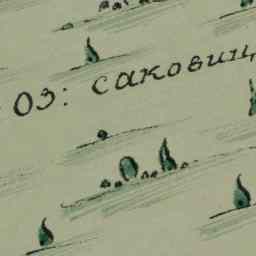 ОЗ: САКОВИЩ